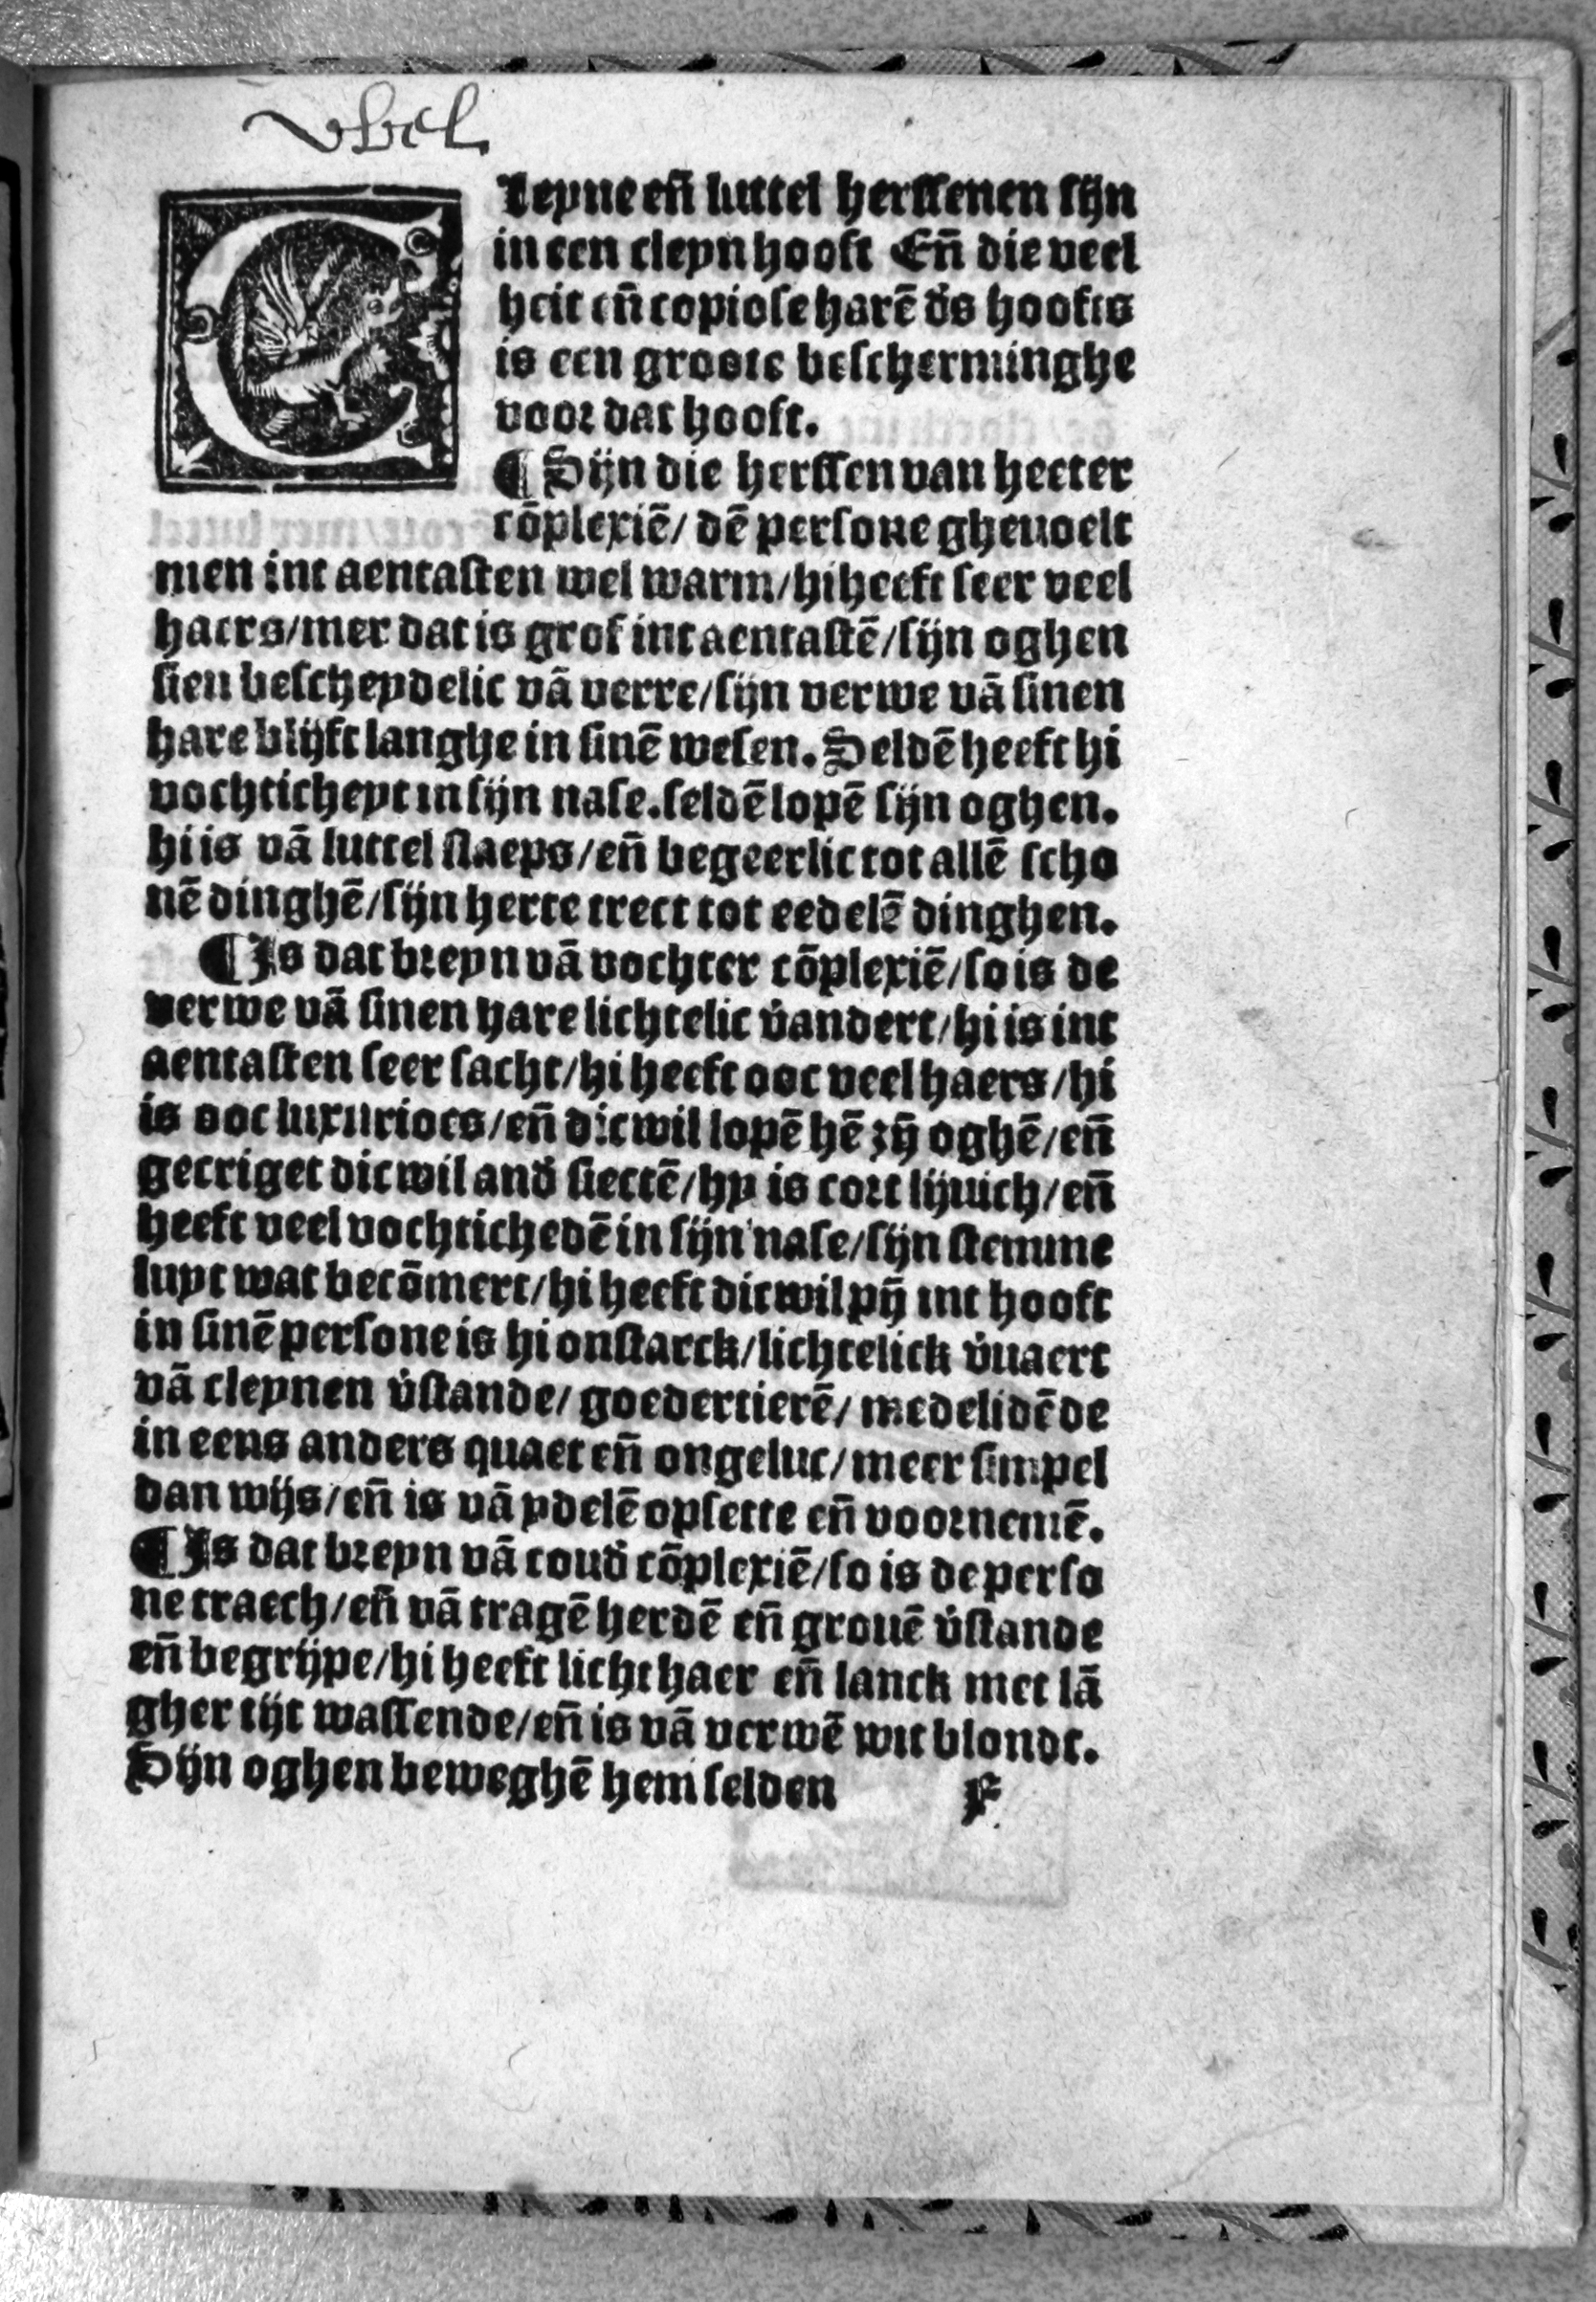 vbel
Cleyne en̄ luttel herſſenen ſijn
in een cleyn hooft En̄ die veel
heit en̄ copioſe harē d̕s hoofts
is een groote beſcherminghe
voor dat hooft.
¶ Sijn die herſſen van heeter
cōplexiē/ dē perſone gheuoelt
men int aentaſten wel warm/hi heeft ſeer veel
haers/mer dat is grof int aentaſtē/ſijn oghen
ſien beſcheydelic vā verre/ſijn verwe vā ſinen
hare blijft langhe in ſinē weſen. Seldē heeft hi
vochticheyt in ſijn naſe.ſeldē lopē ſijn oghen.
hi is vā luttel ſlaeps/en̄ begeerlic tot allē ſcho
nē dinghē/ſijn herte trect tot eedelē dinghen.
¶ Is dat breyn vā vochter cōplexiē/ſo is de
verwe vā ſinen hare lichtelic v̕andert/hi is int
aentaſten ſeer ſacht/hi heeft ooc veel haers/hi
is ooc luxurioes/en̄ dicwil lopē hē zȳ oghē/en̄
gecriget dicwil and̕ ſiectē/hy is cort lijuich/en̄
heeft veel vochtichedē in ſijn naſe/ſijn ſtemme
luyt wat becōmert/hi heeft dicwil pȳ int hooft
in ſinē perſone is hi onſtarck/lichtelick v̕uaert
vā cleynen v̕ſtande/ goedertierē/ medelidēde
in eens anders quaet en̄ ongeluc/meer ſimpel
dan wijs/en̄ is vā ydelē opſette en̄ voornemē.
¶ Is dat breyn vā coud̕ cōplexiē/ſo is de perſo
ne traech/en̄ vā tragē herdē en̄ grouē v̕ſtande
en̄ begrijpe/hi heeft licht haer en̄ lanck met lā
gher tijt waſſende/en̄ is vā verwē wit blondt.
Sijn oghen beweghē hem ſelden